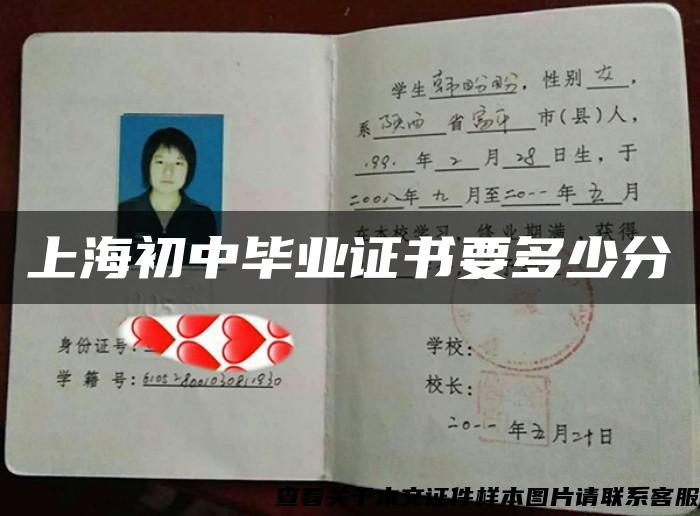 学生韩盼盼，性别女，
系陕西省富平市(县)人，
1991年2月28日生，于
二00八年九月至二0一一年五月
在本校学习，修业期满，获得
上海初中毕业证书要多少分
身份证号:
学籍号:610528001030811930
学校:
校长:
二0一一年五月二十日
查看关于本文证件样本图片请联系客服